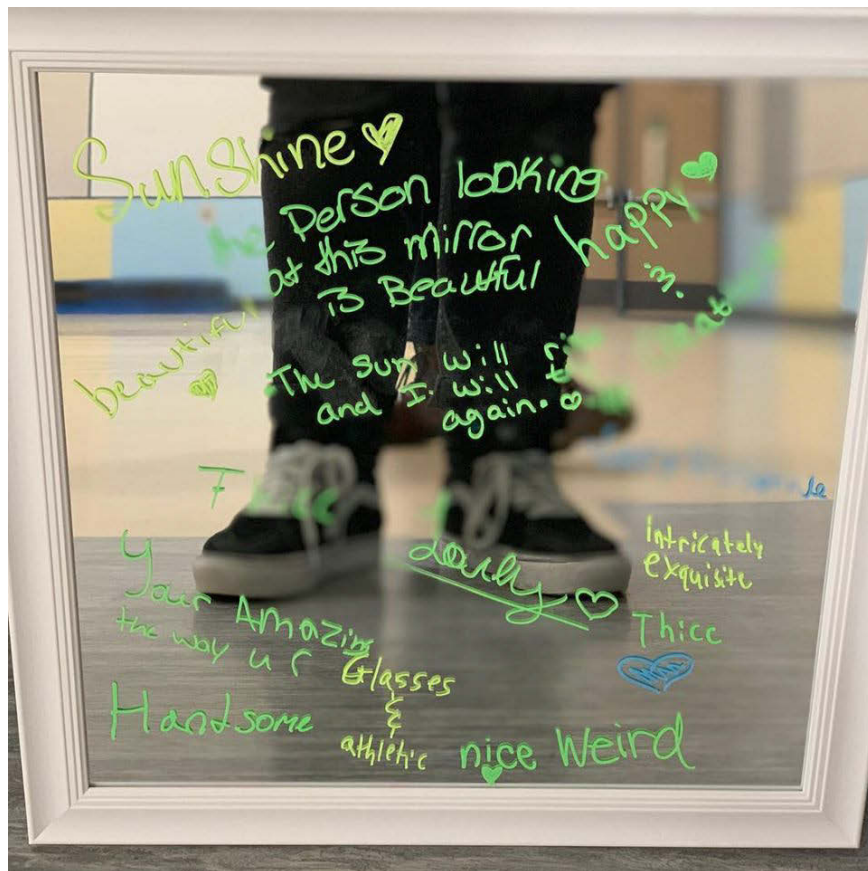 Sunshine
Person looking
at this mirror
is Beautiful
happy
is.
beautiful
The sun will
and I will
again.
Thicc
Lovely
intricately
exquisite
Your Amazing
the way u r
Thicc
Glasses
&
athletic
Handsome
nice Weird